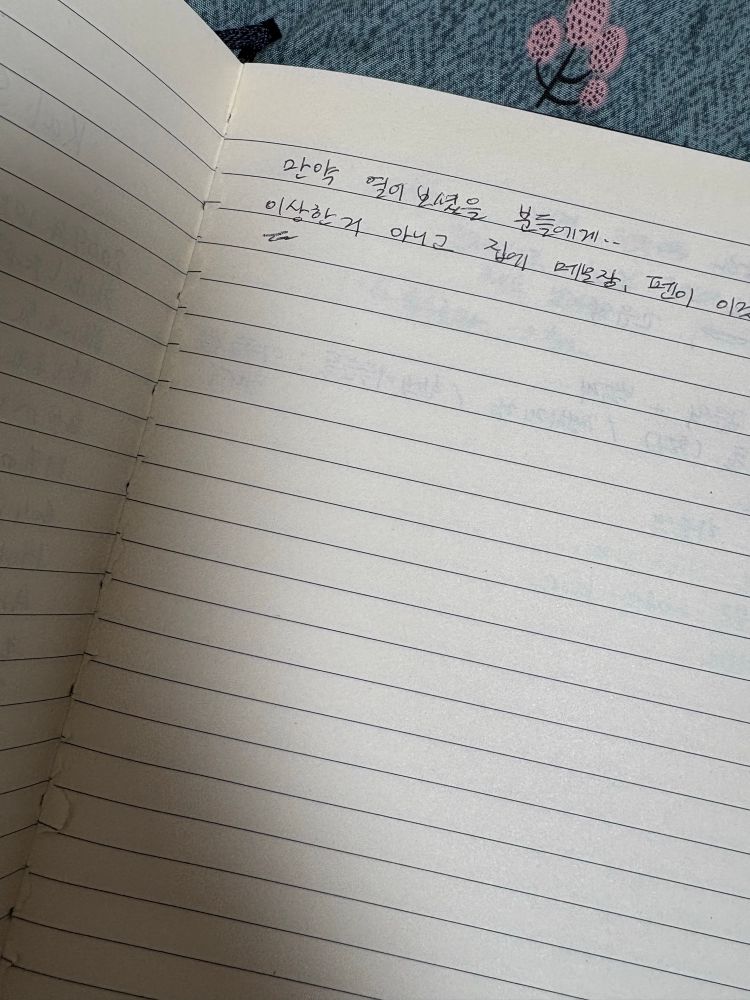 만약 열어 보셨을 분들에게..
이상한 거 아니고 집에 메모장, 펜이